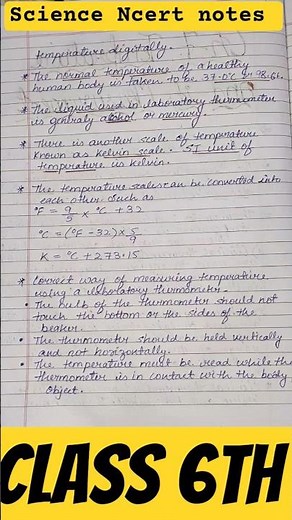 Science Ncert notes
temperature digitally.
* The normal temperature of a healthy
human body is taken to be 37.0°C or 98.6F.
* The liquid used in laboratory thermometer
is genraly alcohol or mercury.
* There is another scale of temperature
known as kelvin scale. SI unit of
temperature is kelvin.
* The temperature scales can be converted into
each other such as
°F = 9/5 × °C + 32
°C = (°F - 32) × 5/9
K = °C + 273.15
* Correct way of measuring temperature
using a laboratory thermometer.
• The bulb of the thermometer should not
touch the bottom or the sides of the
beaker.
• The thermometer should be held vertically
and not horizontally.
• The temperature must be read while the
thermometer is in contact with the body
object.
CLASS 6TH